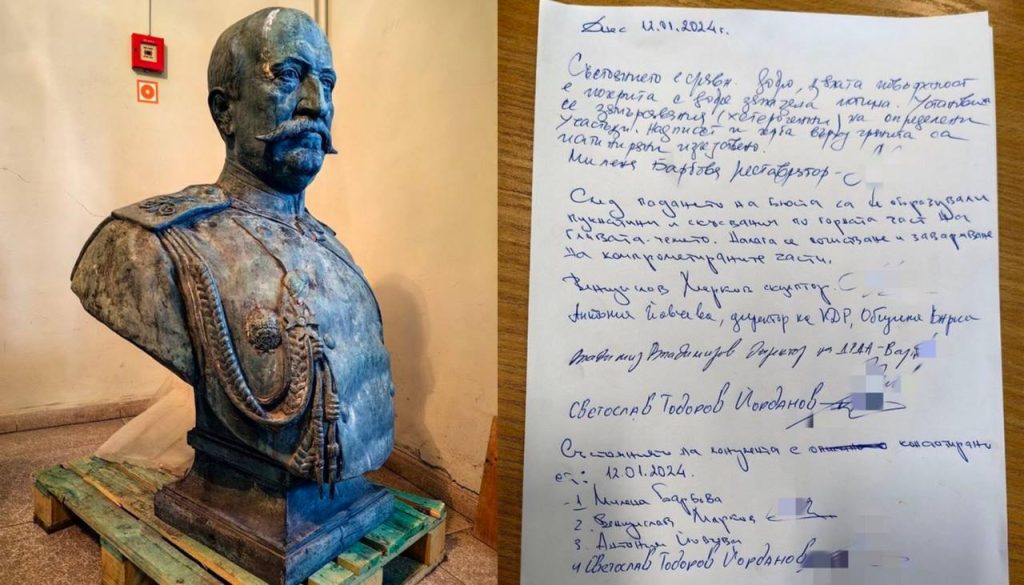 Днес 12.01.2024г.
Състоянието е сравн. добро, цялата повърхност
е покрита с добре запазена патина. Установени
се замърсявания (хетерогенни) на определени
участъци. Надписът и герба върху гранита са
патинирани изкуствено.
Милена Барбова реставратор -
След падането на бюста са се образували
пукнатини и скъсвания по горната част на
главата-челото. Налага се почистване и заваряване
на компрометираните части.
Венцислав Марков скулптор.
Антония Йовчева, директор на КДР, Община Варна
Владимир Владимиров Директор на ДРДА-Варна
Светослав Тодоров Йорданов
Състоянието на монумента е констатирано
от: 12.01.2024.
1 Милена Барбова
2 Венцислав Марков
3. Антония Йовчева
4 Светослав Тодоров Йорданов